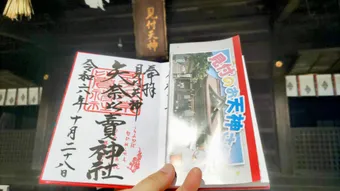 見付天神
奉拝
見付天神
矢奈比賣神社
令和六年十月二十八日
お天神さま